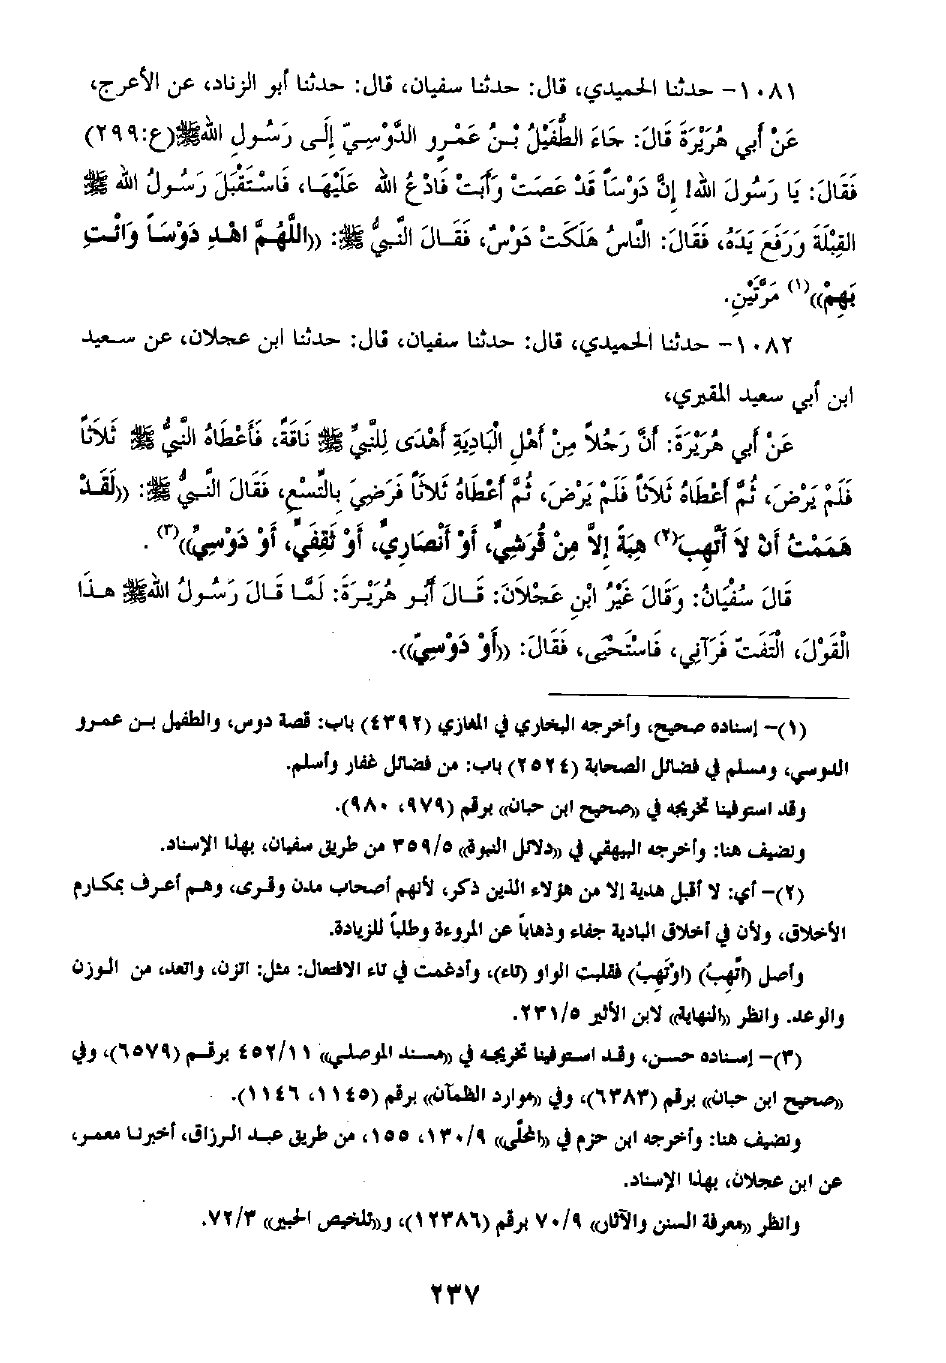 ١٠٨١- حدثنا الحميدي، قال: حدثنا سفيان، قال: حدثنا أبو الزناد، عن الأعرج،
عَنْ أَبي هُرَيْرَةَ قَالَ: جَاءَ الطُّفَيْلُ بْنُ عَمْرٍو الدَّوْسِيّ إِلَى رَسُولِ اللهِ ﷺ (ع:٢٩٩)
فَقَالَ: يَا رَسُولَ اللهِ! إِنَّ دَوْساً قَدْ عَصَتْ وَأَبَتْ فَادْعُ الله عَلَيْهَا، فَاسْتَقْبَلَ رَسُولُ الله ﷺ
القِبْلَةَ وَرَفَعَ يَدَهُ، فَقَالَ: النَّاسُ هَلَكَتْ دَوْسٌ، فَقَالَ النَّبِيُّ ﷺ: ((اللَّهُمَّ اهْدِ دَوْسَاً وَائْتِ
بِهِمْ))(١) مَرَّتَيْنِ.
١٠٨٢- حدثنا الحميدي، قال: حدثنا سفيان، قال: حدثنا ابن عجلان، عن سعيد
ابن أبي سعيد المقبري،
عَنْ أَبي هُرَيْرَةَ: أَنَّ رَجُلاً مِنْ أَهْلِ الْبَادِيَةِ أَهْدَى لِلنَّبِيِّ ﷺ نَاقَةً، فَأَعْطَاهُ النَّبِيُّ ﷺ ثَلاَثاً
فَلَمْ يَرْضَ، ثُمَّ أَعْطَاهُ ثَلاَثاً فَلَمْ يَرْضَ، ثُمَّ أَعْطَاهُ ثَلاثاً فَرَضِيَ بِالتِّسْعِ، فَقَالَ النَّبِيُّ ﷺ: ((لَقَدْ
هَمَمْتُ أَنْ لاَ أَتَّهِبَ(٢) هِبَةً إِلاَّ مِنْ قُرَشِيٍّ، أَوْ أَنْصَارِيٍّ، أَوْ ثَقَفِيٍّ، أَوْ دَوْسِيٍّ))(٣).
قَالَ سُفْيَانُ: وَقَالَ غَيْرُ ابْنِ عَجْلاَنَ: قَالَ أَبُو هُرَيْرَةَ: لَمَّا قَالَ رَسُولُ اللهِ ﷺ هذَا
الْقَوْلَ، الْتَفَتَ فَرَآنِي، فَاسْتَحْيَى، فَقَالَ: ((أَوْ دَوْسِيّ)).
(١)- إسناده صحيح، وأخرجه البخاري في المغازي (٤٣٩٢) باب: قصة دوس، والطفيل بن عمرو
الدوسي، ومسلم في فضائل الصحابة (٢٥٢٤) باب: من فضائل غفار وأسلم.
وقد استوفينا تخريجه في ((صحيح ابن حبان)) برقم (٩٧٩، ٩٨٠).
ونضيف هنا: وأخرجه البيهقي في ((دلائل النبوة)) ٣٥٩/٥ من طريق سفيان، بهذا الإسناد.
(٢)- أي: لا أقبل هدية إلا من هؤلاء الذين ذكر، لأنهم أصحاب مدن وقرى، وهم أعرف بمكارم
الأخلاق، ولأن في أخلاق البادية جفاء وذهاباً عن المروءة وطلباً للزيادة.
وأصل (اتَّهِبُ) (اوْتَهِبُ) فقلبت الواو (تاء)، وأدغمت في تاء الافتعال: مثل: اتزن، واتعد، من الوزن
والوعد. وانظر ((النهاية)) لابن الأثير ٢٣١/٥.
(٣)- إسناده حسن، وقد استوفينا تخريجه في ((مسند الموصلي)) ٤٥٢/١١ برقم (٦٥٧٩)، وفي
((صحيح ابن حبان)) برقم (٦٣٨٣)، وفي ((موارد الظمآن)) برقم (١١٤٥، ١١٤٦).
ونضيف هنا: وأخرجه ابن حزم في ((المحلَّى)) ١٣٠/٩، ١٥٥، من طريق عبد الرزاق، أخبرنا معمر،
عن ابن عجلان، بهذا الإسناد.
وانظر ((معرفة السنن والآثار)) ٧٠/٩ برقم (١٢٣٨٦)، و((تلخيص الحبير)) ٧٢/٣.
٢٣٧